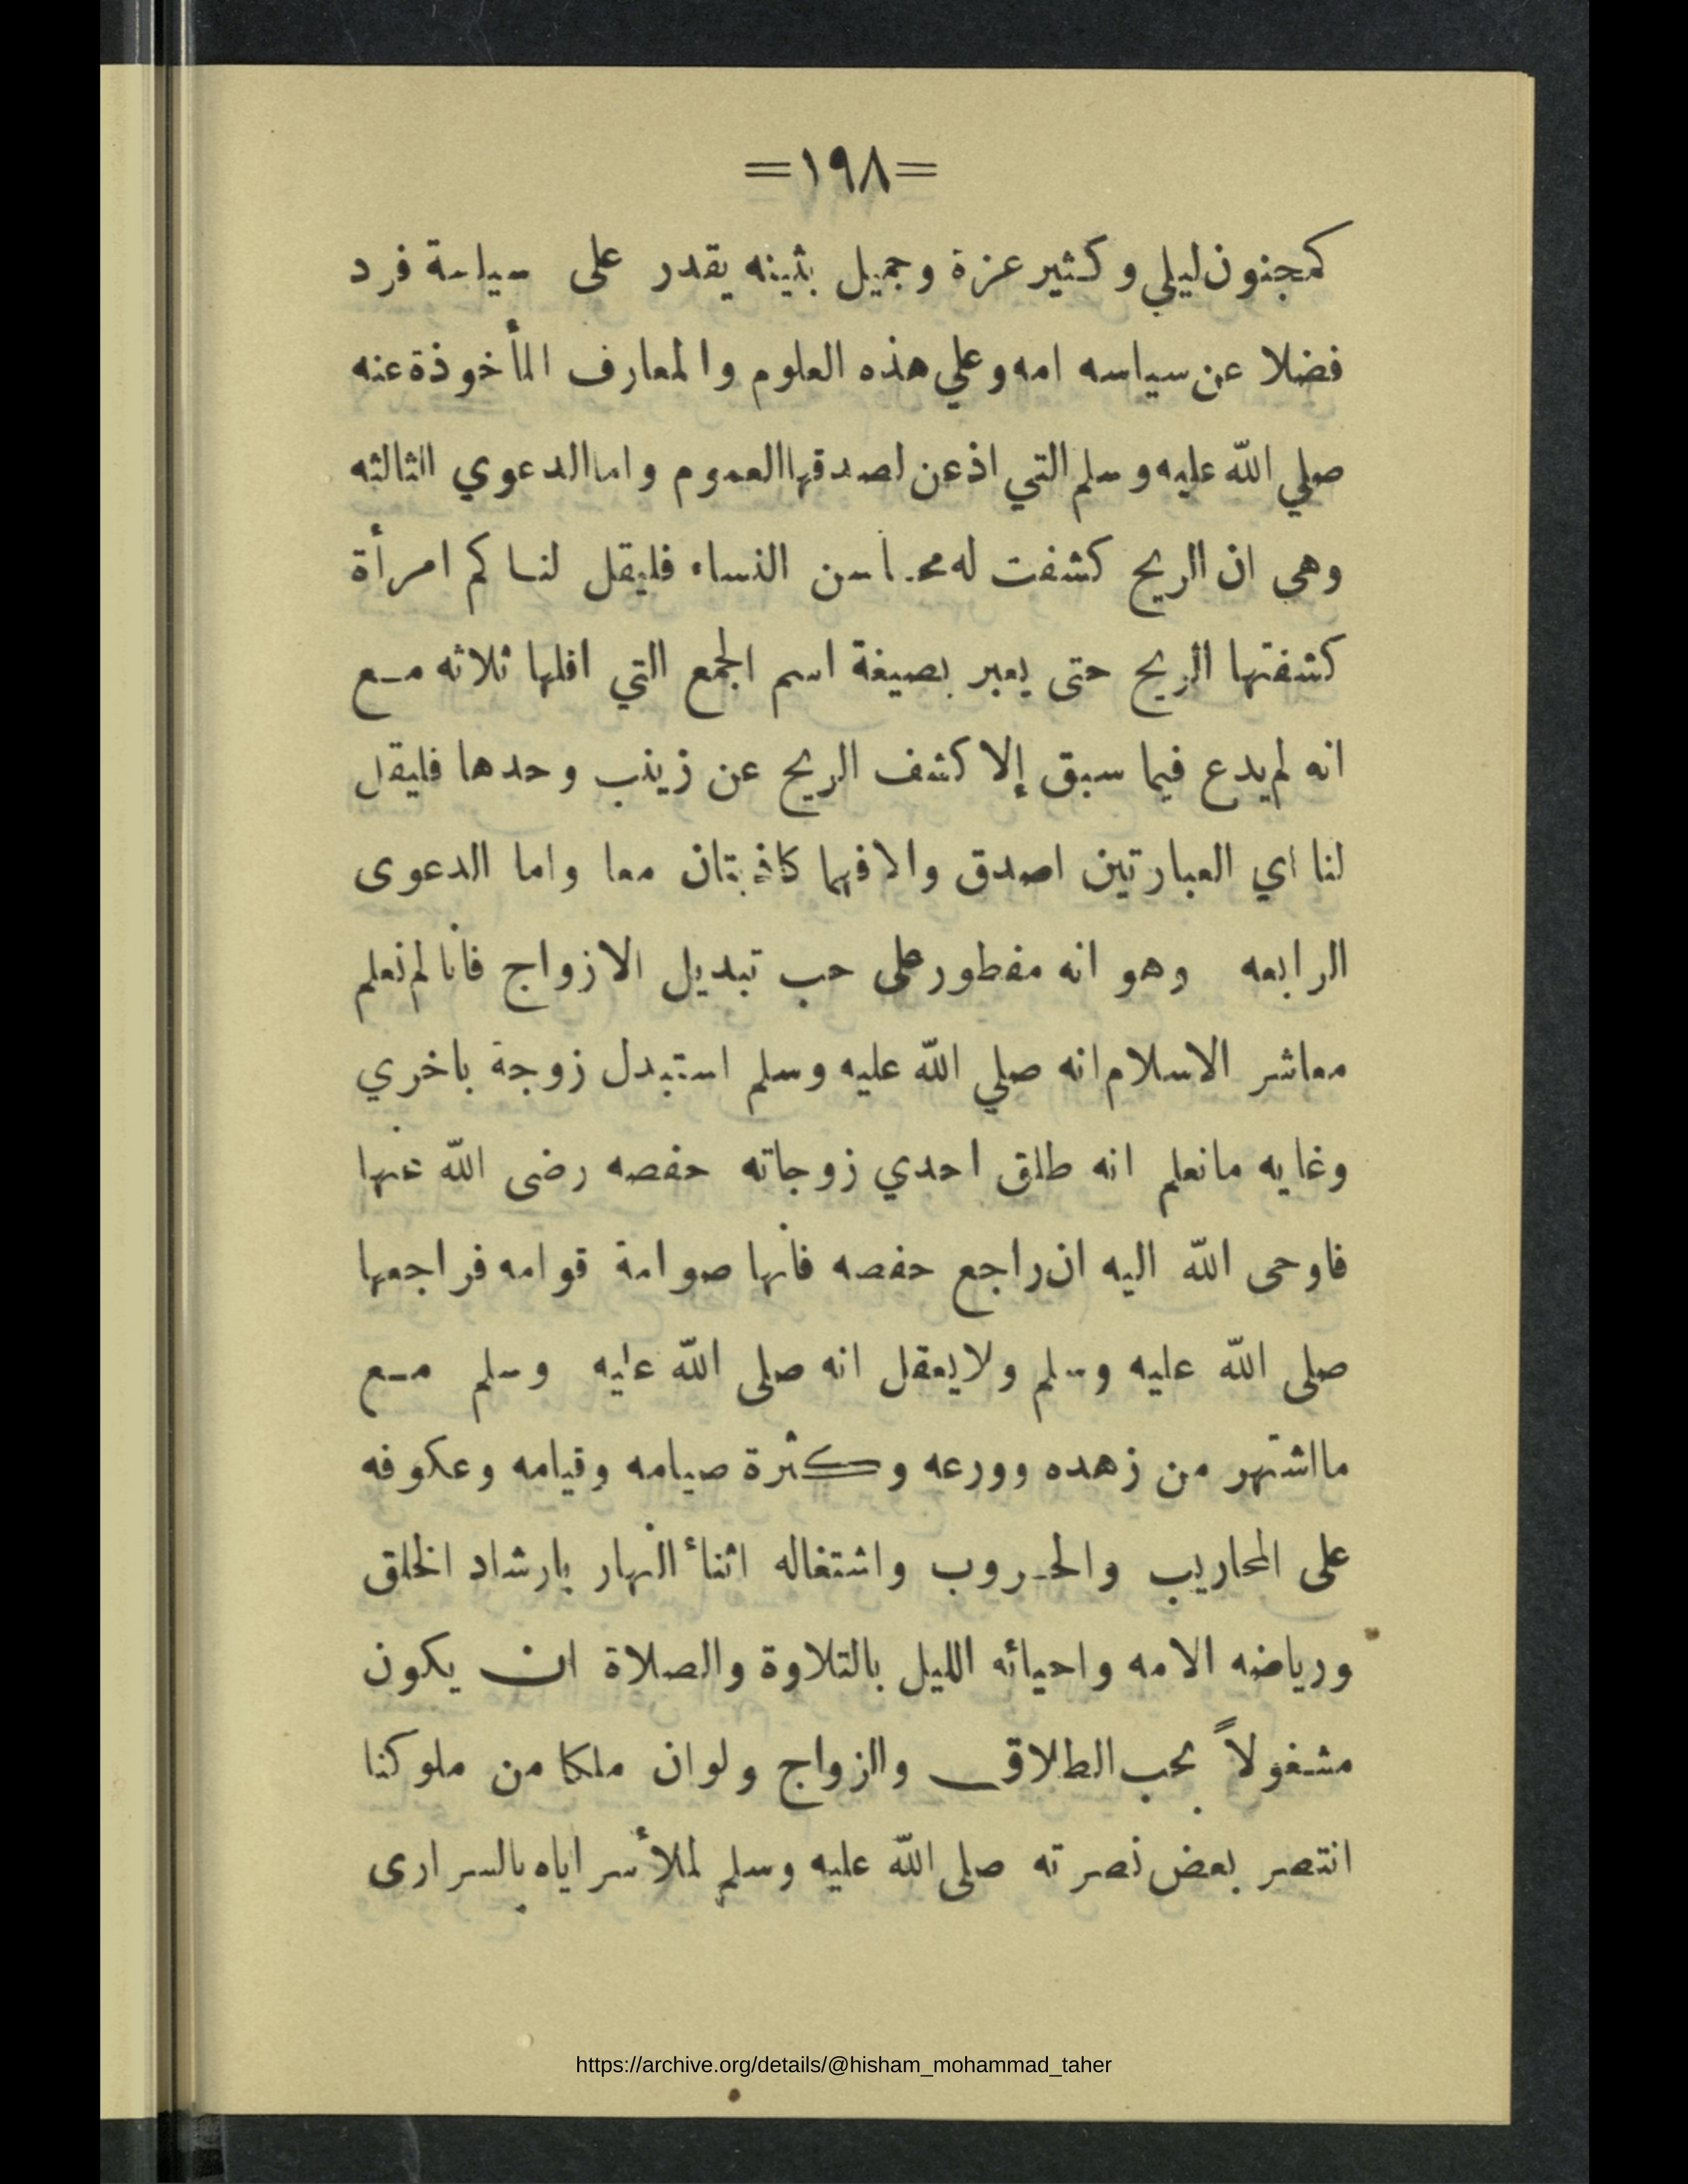 =١٩٨=
كمجنون ليلي وكثير عزة وجميل بثينه يقدر على سياسة فرد
فضلا عن سياسه امه وعلي هذه العلوم والمعارف المأخوذة عنه
صلي الله عليه وسلم التي اذعن لصدقها العموم واما الدعوي الثالثه
وهي ان الريح كشفت له محاسن النساء فليقل لنا كم امرأة
كشفتها الريح حتى يعبر بصيغة اسم الجمع التي اقلها ثلاثه مع
انه لم يدع فيما سبق إلا كشف الريح عن زينب وحدها فليقل
لنا اي العبارتين اصدق والا فهما كاذبتان معا واما الدعوى
الرابعه وهو انه مفطور على حب تبديل الازواج فأنا لم نعلم
معاشر الاسلام انه صلي الله عليه وسلم استبدل زوجة باخري
وغايه مانعلم انه طلق احدي زوجاته حفصه رضى الله عنها
فاوحى الله اليه ان راجع حفصه فأنها صوامة قوامه فراجعها
صلى الله عليه وسلم ولا يعقل انه صلى الله عليه وسلم مع
مااشتهر من زهده وورعه وكثرة صيامه وقيامه وعكوفه
على المحاريب والحروب واشتغاله اثناء النهار بارشاد الخلق
ورياضه الامه واحيائه الليل بالتلاوة والصلاة ان يكون
مشغولاً بحب الطلاق والزواج ولو ان ملكا من ملوكنا
انتصر بعض نصرته صلى الله عليه وسلم لملأ سراياه بالسرارى
https://archive.org/details/@hisham_mohammad_taher